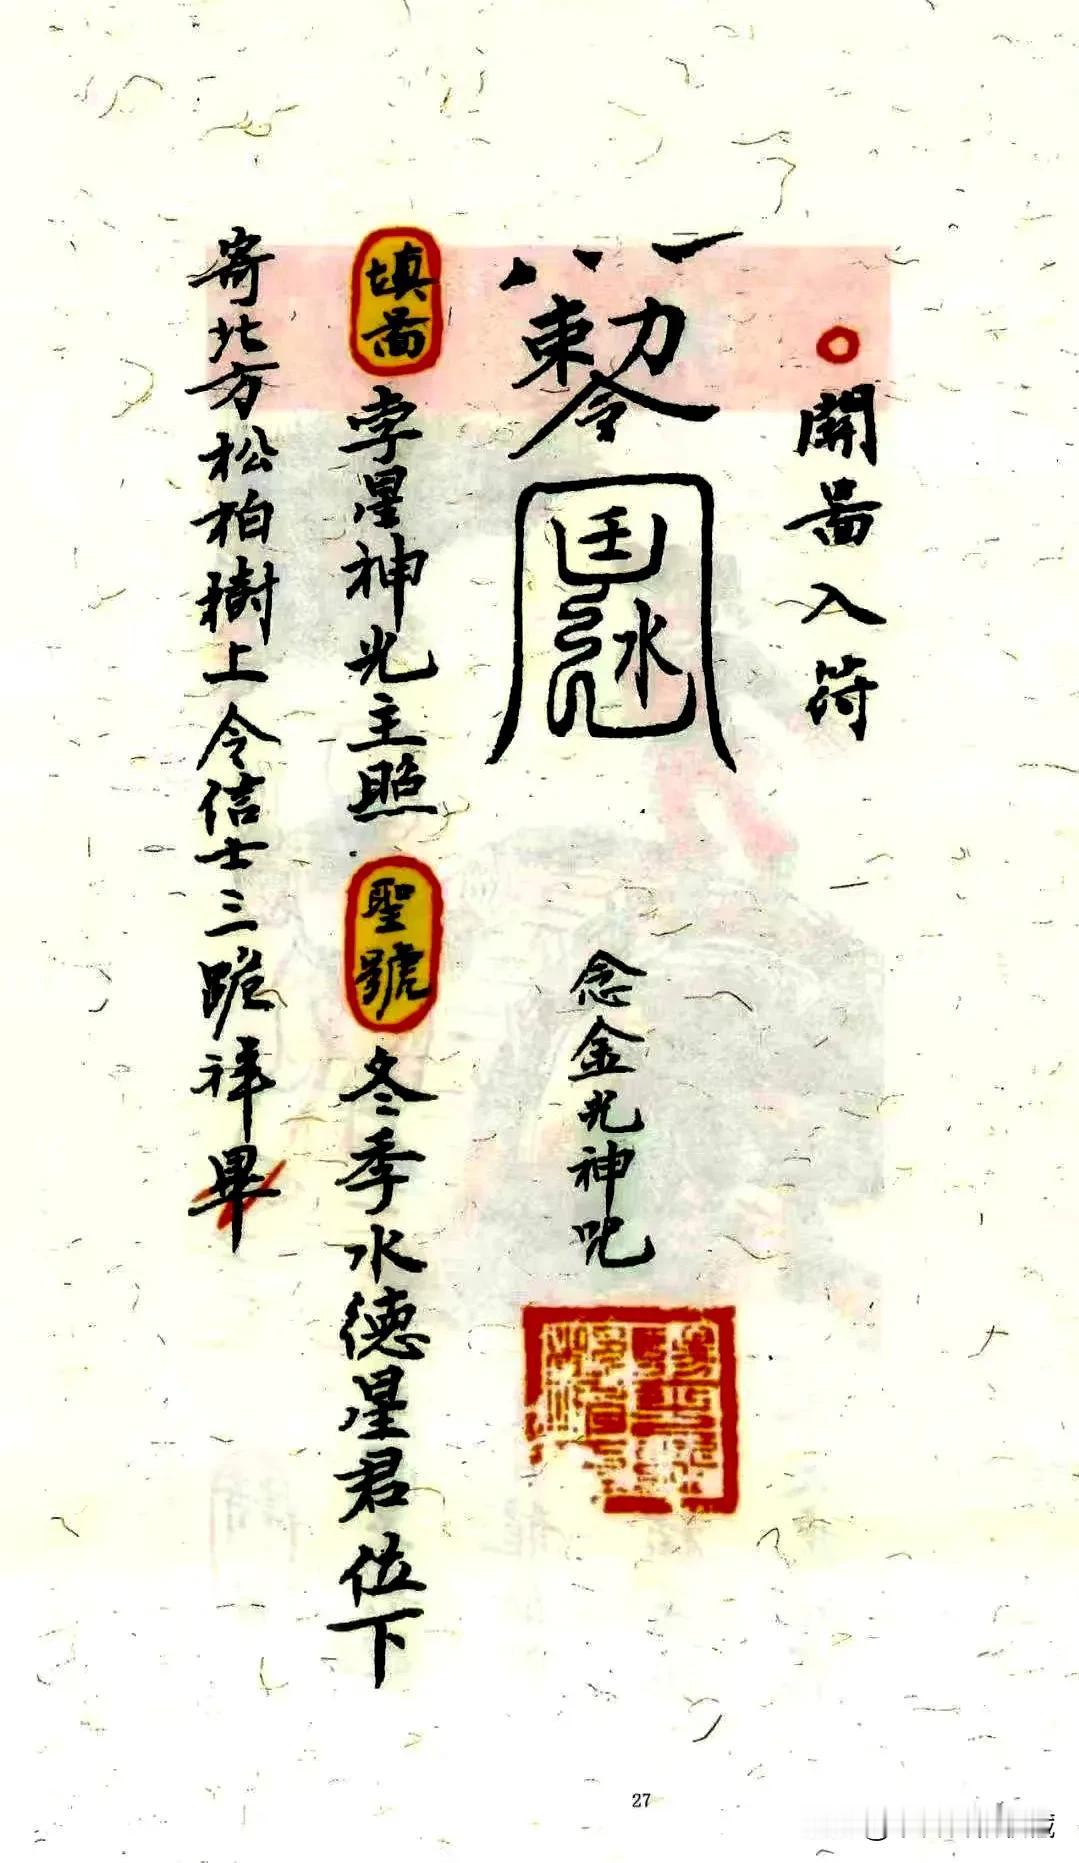 開啚入符
勅令
壬
水
念金光神咒
填啚
孛星神光主照
聖號
冬季水德星君位下
寄北方松柏樹上令信士三跪祥畢
27